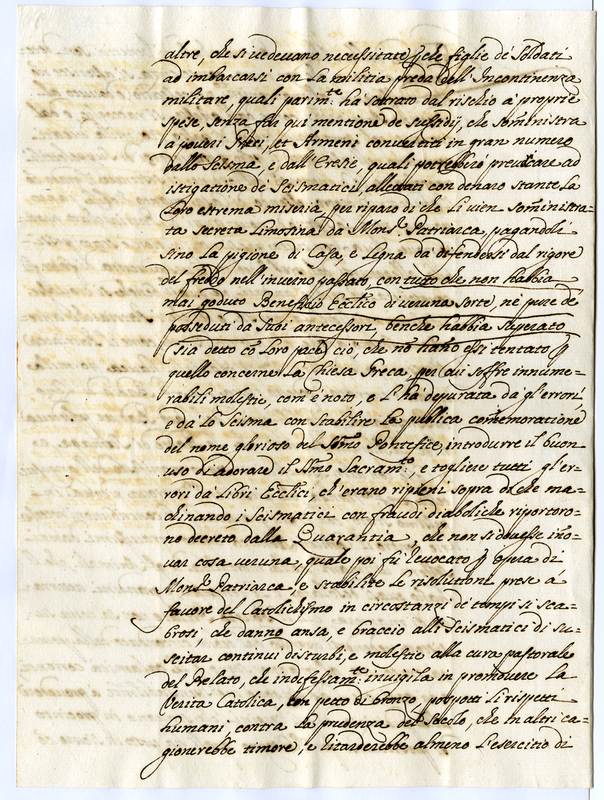 altre, che si vedevano necessitate p che figlie de Soldati
ad imbarcarsi con la militia preda dell'Incontinenza
militare, quali parim:te ha sotrato dal rischio à proprie
spese, senza far qui mentione de sussidij, che somministra
à poveri Greci, et Armeni convertiti in gran numero
dallo Scisma, e dall'Eresie, quali potrebbero prevaricare ad
istigatione de Scismatici, allettati con denaro stante la
loro estrema miseria, per riparo di che li vien somministra-
ta secreta limosina da Mons.r Patriarca, pagandoli
sino la pigione di Casa, e Legna da difendersi dal rigore
del freddo nell'inverno passato, con tutto che non habbia
mai goduto Beneficio Ecclico di veruna sorte, nè pure de
posseduti da suoi antecessori, benche habbia superato
(sia detto cõ loro pace) ciò, che nõ hanno essi tentato p
quello concerne la Chiesa Greca, per cui soffre innume-
rabili molestie, com'è noto, e l'hà depurata da gl'errori,
e da lo Scisma con stabilire la publica comemoratione
del nome glorioso del Sõmo Pontefice, introdurre il buon
uso di adorare il SSmo Sacram:to, e togliere tutti gl'er-
rori da Libri Ecclici, ch'erano ripieni sopra di che ma-
chinando i Scismatici con fraudi diaboliche riportoro-
no decreto dalla Quarantia, che non si dovesse ino-
var cosa veruna, quale poi fù revocato p opera di
Mons.r Patriarca, e stabilite le risolutioni prese à
favore del Catolichismo in circostanze de tempi si sca-
brosi, che danno ansa, e braccio alli Scismatici di su-
scitar continui disturbi, e molestie alla cura pastorale
del Prelato, che indefessam:te invigila in promovere la
verità Catolica, con petto di bronzo, posposti li rispetti
humani, contra la prudenza del Secolo, che in altri ca-
gionerebbe timore, e ritarderebbe almeno l'esercitio di